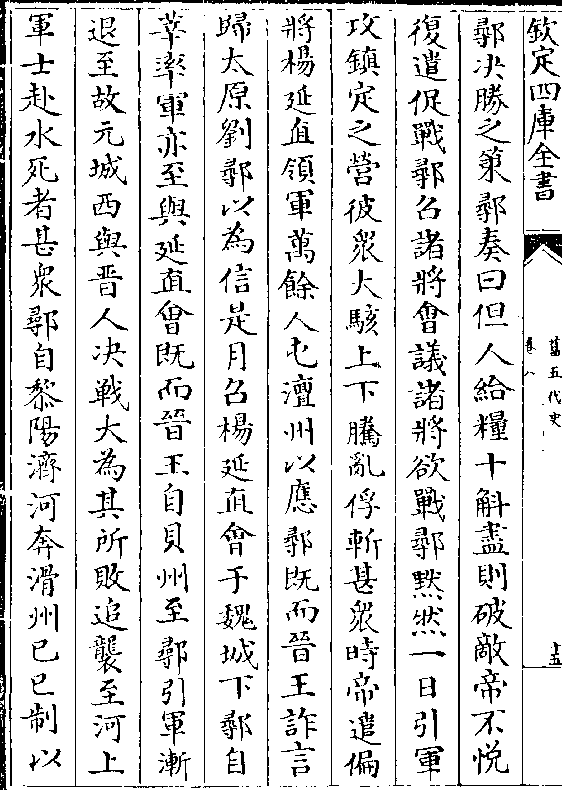 欽定四庫全書
舊五代史
卷八
十五
鄩决勝之策鄩奏曰但人給糧十斛盡則破敵帝不悦
復遣促戰鄩召諸將會議諸將欲戰鄩黙然一日引軍
攻鎮定之營彼衆大駭上下騰亂俘斬甚衆時帝遣偏
將楊延直領軍萬餘人屯澶州以應鄩既而晉王詐言
歸太原劉鄩以為信是月召楊延直會于魏城下鄩自
莘率軍亦至與延直會既而晉王自貝州至鄩引軍漸
退至故元城西與晉人决戰大為其所敗追襲至河上
軍士赴水死者甚衆鄩自黎陽濟河奔滑州己巳制以